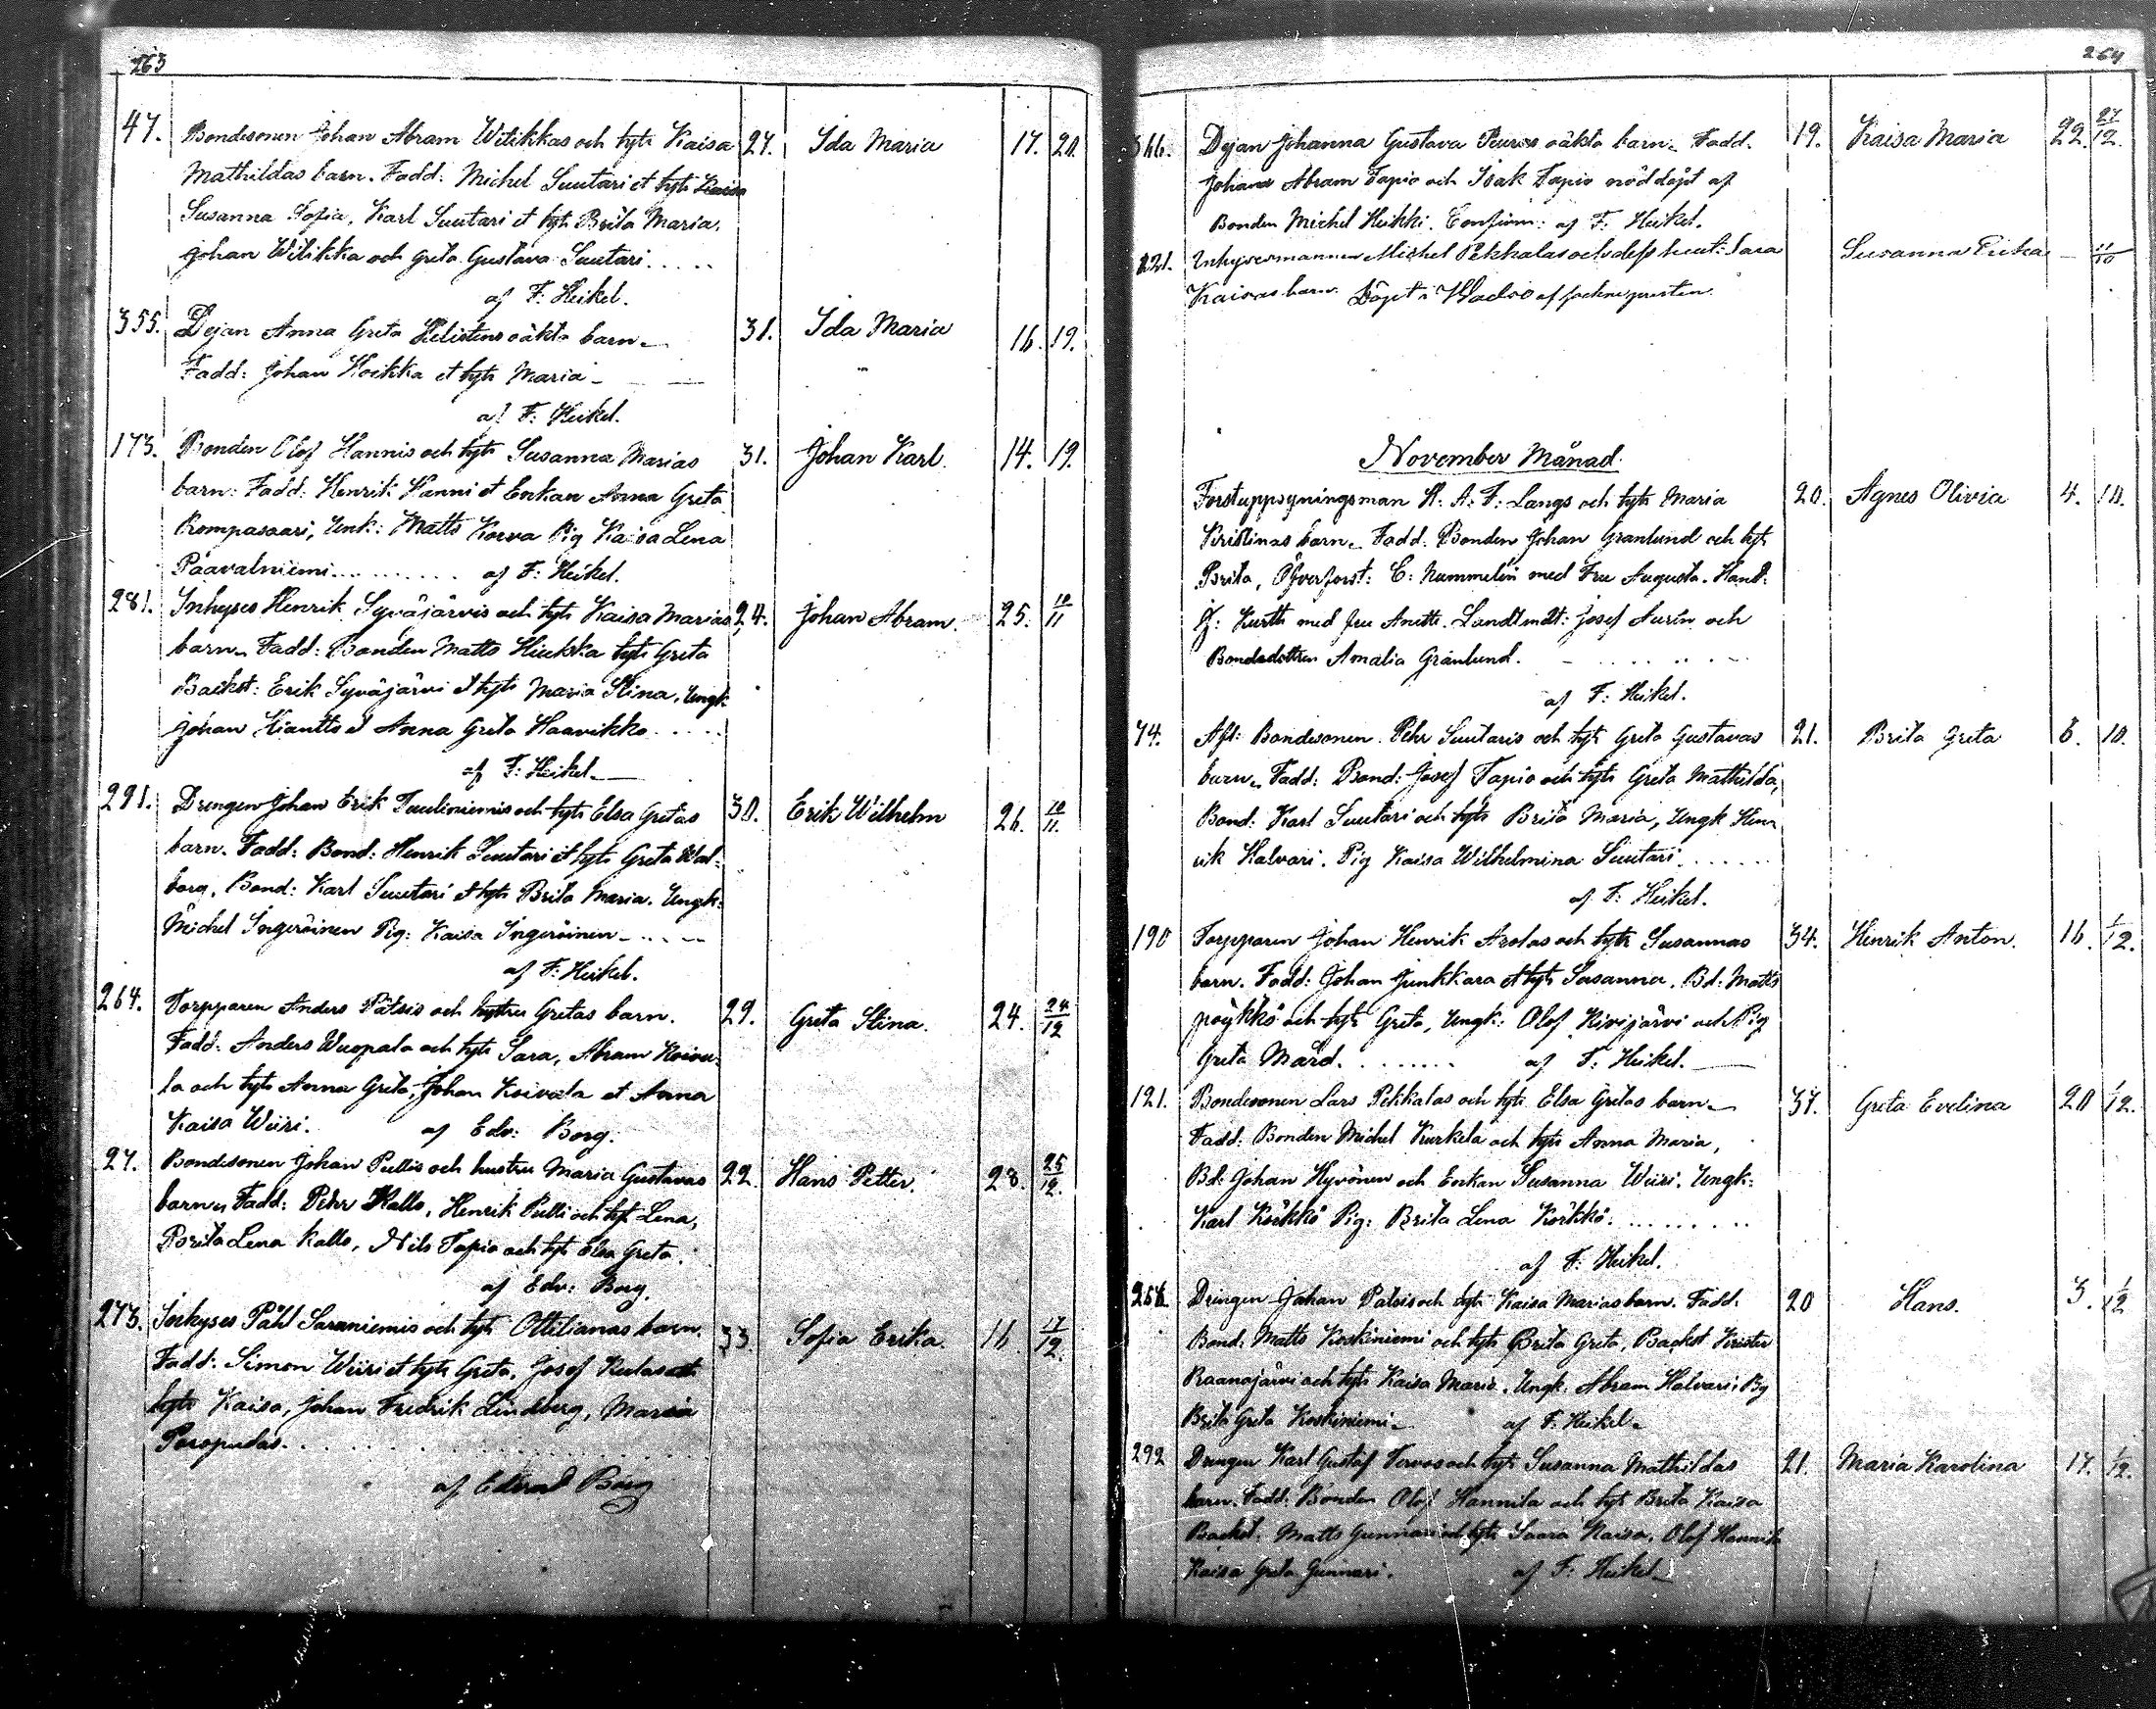 263
47. Bondesonen Johan Abram Witikkas och hyts Kaisa 27. Ida Maria 17. 20.
Mathildas barn. Fadd: Michel Suutari et hyts
Susanna Sofia, Karl Suutari et hyts Brita Maria,
Johan Witikka och Greta Gustava Suutari.....
af F: Heikel.
355. Dejan Anna Greta oäkta barn. 31. Ida Maria 16. 19.
Fadd: Johan et hyts Maria
af F: Heikel.
173. Bonden Olof Hannis och hyts Susanna Marias 31. Johan Karl. 14. 19.
barn: Fadd: Henrik Hanni et Enkan Anna Greta
Rompasaari, Unk: Matts Korva Pig Kaisa Lena
Paavalniemi.......... af F: Heikel.
281. Inhyses Henrik Syväjärvis och hyts Kaisa Marias 24. Johan Abram. 25. 10/11
barn. Fadd: Bonden Matts hyts Greta
Backst: Erik Syväjärvi et hyts Maria Stina, Ungk
Johan Kiantto et Anna Greta Haavikko.....
af F: Heikel.
291. Drengen Johan Erik Tauliniemis och hyts Elsa Gretas 30. Erik Wilhelm 26. 10/11.
barn. Fadd: Bond: Henrik Suutari et hyts Greta Wal-
borg, Bond: Karl Suutari et hyts Brita Maria. Ungk:
Michel Ingeröinen Pig: Kaisa Ingeröinen
af F: Heikel.
264. Torpparen Anders Pätsis och hustru Gretas barn. 29. Greta Stina. 24. 24/12
Fadd: Anders Wuopala och hyts Sara, Abram Koivu-
la och hyts Anna Greta, Johan Koivula et Anna
Kaisa Wiiri. af Edv: Borg.
27. Bondesonen Johan Pullis och hustru Maria Gustavas 22. Hans Petter. 28. 25/12.
barn. Fadd: Pehr Kallo, Henrik Pulli och hyts Lena,
Brita Lena Kallo, Nils Tapio och hyts Elsa Greta.
af Edv: Borg.
273. Inhyses Påhl Saraniemis och hyts Ottilianas barn. 33. Sofia Erika. 16. 17/12.
Fadd: Simon Wiiri et hyts Greta, Josef et
hyts Kaisa, Johan Fredrik Lindberg, Maria
Poropudas.
af Edvard Borg
264
366. Dejan Johanna Gustava Peuras oäkta barn. Fadd. 19. Kaisa Maria 22. 27/12.
Johan Abram Tapio och Isak Tapio nöddöpt af
Bonden Michel Heikki. Confirm: af F: Heikel.
221. Inhysesmannen Michel Pekkalas och dess hust: Sara Susanna Erika — 11/10
Kaisas barn. Döpt i Wadsö af sockne presten.
November Månad.
Forstuppsyningsman K: A: F: Langs och hyts Maria 20. Agnes Olivia 4. 10.
Kristinas barn. Fadd: Bonden Johan Granlund och hyts
Brita, Öfverforst: C: Nummelin med Fru Augusta. Hand:
J: Kurth med fru Anette. Landtmät: Josef Aurén och
Bondedottren Amalia Granlund.
af F: Heikel.
74. Aft: Bondesonen Pehr Suutaris och hyts Greta Gustavas 21. Brita Greta 6. 10.
barn. Fadd: Bond: Josef Tapio och hyts Greta Mathilda,
Bond: Karl Suutari och hyts Brita Maria, Ungk Hen-
rik Halvari. Pig Kaisa Wilhelmina Suutari.......
af F: Heikel.
190 Torpparen Johan Henrik Arolas och hyts Susannas 34. Henrik Anton. 16. 1/12.
barn. Fadd: Johan Junkkara et hyts Susanna. Bd: Matts
Pöykkö och hyts Greta, Ungk: Olof Kivijärvi och Pig
Greta Mård. af F: Heikel.
121. Bondesonen Lars Pekkalas och hyts Elsa Gretas barn 37. Greta Evelina 20 1/12.
Fadd: Bonden Michel Kurkela och hyts Anna Maria,
Bd: Johan Hyvönen och Enkan Susanna Wiiri. Ungk:
Karl Körkkö Pig: Brita Lena Körkkö.
af F: Heikel.
256. Drengen Johan Patsis och hyts Kaisa Marias barn. Fadd. 20 Hans. 3. 1/12
Bond: Matts Koskiniemi och hyts Brita Greta, Backst Krister
Raanojärvi och hyts Kaisa Maria. Ungk. Abram Halvari, Pig
Brita Greta Koskiniemi af F. Heikel
292 Drengen Karl Gustaf Tervos och hyts Susanna Mathildas 21. Maria Karolina 17. 1/12.
barn. Fadd: Bonden Olof Hannila och hyts Brita Kaisa
Backst: Matts Gunnari och hyts Saara Kaisa. Olof
Kaisa Greta Gunnari. af F: Heikel